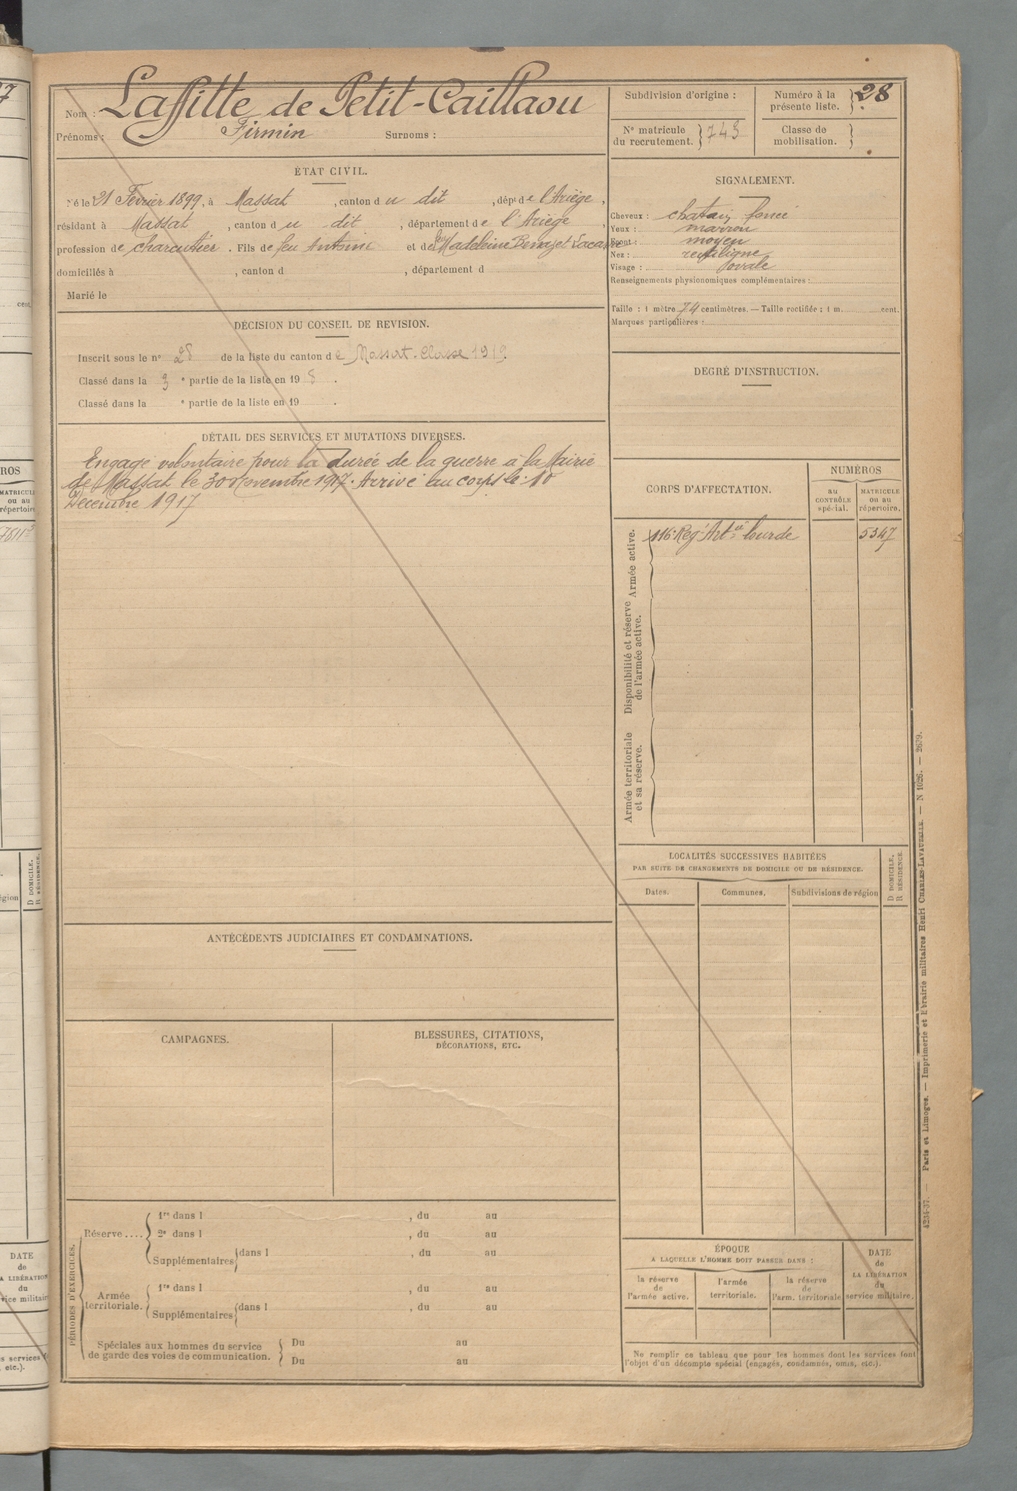 Nom : Laffitte de Petit-Caillaou
Prénoms : Firmin Surnoms :
Subdivision d'origine :
Numéro à la présente liste. 28
N° matricule du recrutement. 743
Classe de mobilisation.
ÉTAT CIVIL.
Né le 21 Février 1899, à Massat, canton du dit, dépt de l'Ariège,
résidant à Massat, canton du dit, département de l'Ariège,
profession de charcutier. Fils de feu Antoine et de Madeleine
domiciliés à , canton d , département d
Marié le
DÉCISION DU CONSEIL DE REVISION.
Inscrit sous le n° 28 de la liste du canton de Massat. Classe 1919
Classé dans la 3e partie de la liste en 19 8.
Classé dans la e partie de la liste en 19 .
DÉTAIL DES SERVICES ET MUTATIONS DIVERSES.
Engagé volontaire pour la durée de la guerre à la Mairie
de Massat le 30 Novembre 1917. Arrivé au corps le 10
Décembre 1917
ANTÉCÉDENTS JUDICIAIRES ET CONDAMNATIONS.
CAMPAGNES.
BLESSURES, CITATIONS,
DÉCORATIONS, ETC.
PÉRIODES D'EXERCICES.
Réserve....
1re dans l , du au
2e dans l , du au
Supplémentaires dans l , du au
Armée territoriale.
1re dans l , du au
Supplémentaires dans l , du au
Spéciales aux hommes du service
de garde des voies de communication.
Du au
Du au
SIGNALEMENT.
Cheveux : chatain foncé
Yeux : marron
Front : moyen
Nez : rectiligne
Visage : ovale
Renseignements physionomiques complémentaires :
Taille : 1 mètre 74 centimètres. — Taille rectifiée : 1 m. cent.
Marques particulières :
DEGRÉ D'INSTRUCTION.
CORPS D'AFFECTATION.
NUMÉROS
AU CONTRÔLE spécial.
MATRICULE ou au répertoire.
Armée active.
116e Régt Artie lourde 5347
Disponibilité et réserve de l'armée active.
Armée territoriale et sa réserve.
LOCALITÉS SUCCESSIVES HABITÉES
PAR SUITE DE CHANGEMENTS DE DOMICILE OU DE RÉSIDENCE.
Dates. Communes. Subdivisions de région
D DOMICILE.
R RÉSIDENCE
ÉPOQUE
A LAQUELLE L'HOMME DOIT PASSER DANS :
DATE de LA LIBÉRATION du service militaire.
la réserve de l'armée active.
l'armée territoriale.
la réserve de l'arm. territoriale
Ne remplir ce tableau que pour les hommes dont les services font
l'objet d'un décompte spécial (engagés, condamnés, omis, etc.).
Paris et Limoges. — Imprimerie et librairie militaires Henri CHARLES-LAVAUZELLE. — N 1026. — 2679.